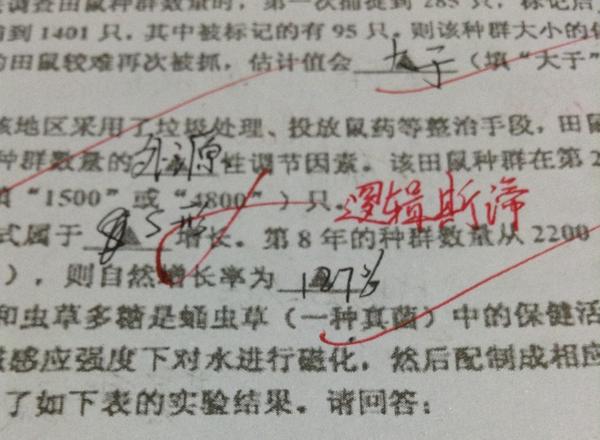 调查田鼠种群数量时，第一次捕捉到 285 只，标记后
到 1401 只，其中被标记的有 95 只，则该种群大小的估
的田鼠较难再次被抓，估计值会 大于 （填“大于”
该地区采用了垃圾处理、投放鼠药等整治手段，田鼠
种群数量的 外源 性调节因素。该田鼠种群在第 2
填“1500”或“4800”）只。 逻辑斯谛
式属于 S形 增长。第 8 年的种群数量从 2200
），则自然增长率为 127%
和虫草多糖是蛹虫草（一种真菌）中的保健活
感应强度下对水进行磁化，然后配制成相应
了如下表的实验结果。请回答：